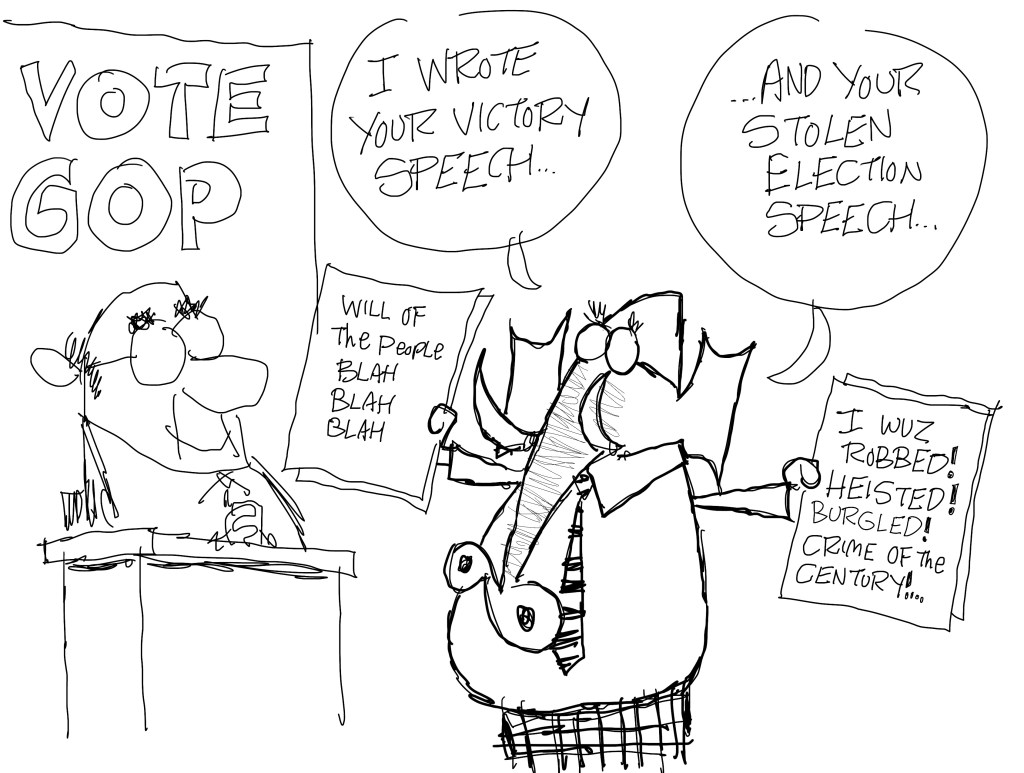 VOTE
GOP
I WROTE
YOUR VICTORY
SPEECH...
...AND YOUR
STOLEN
ELECTION
SPEECH...
WILL OF
The PEOPLE
BLAH
BLAH
BLAH
I WUZ
ROBBED!
HEISTED!
BURGLED!
CRIME OF the
CENTURY!!...